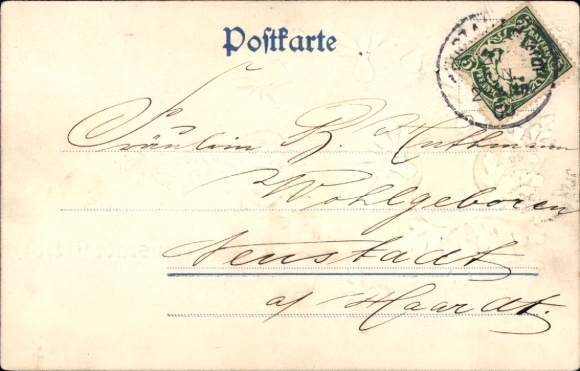 Postkarte
Fräulein B. Huthmann
Wohlgeboren
Neustadt
a/ Haardt.